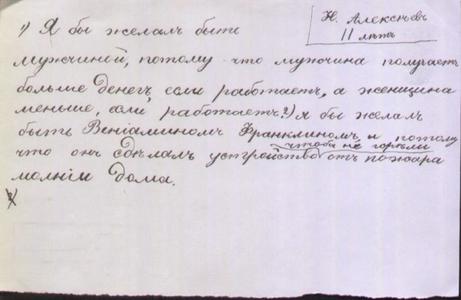 Н. Алексѣевъ
11 лѣтъ
1) Я бы желалъ быть
мужчиной, потому что мужчина получаетъ
больше денегъ, если работаетъ, а женщина
меньше, если работаетъ. 2) я бы желалъ
быть Веніаминомъ Франклиномъ, и потому
чтобы не горѣли
что онъ сдѣлалъ устройство отъ пожара
молніи дома.